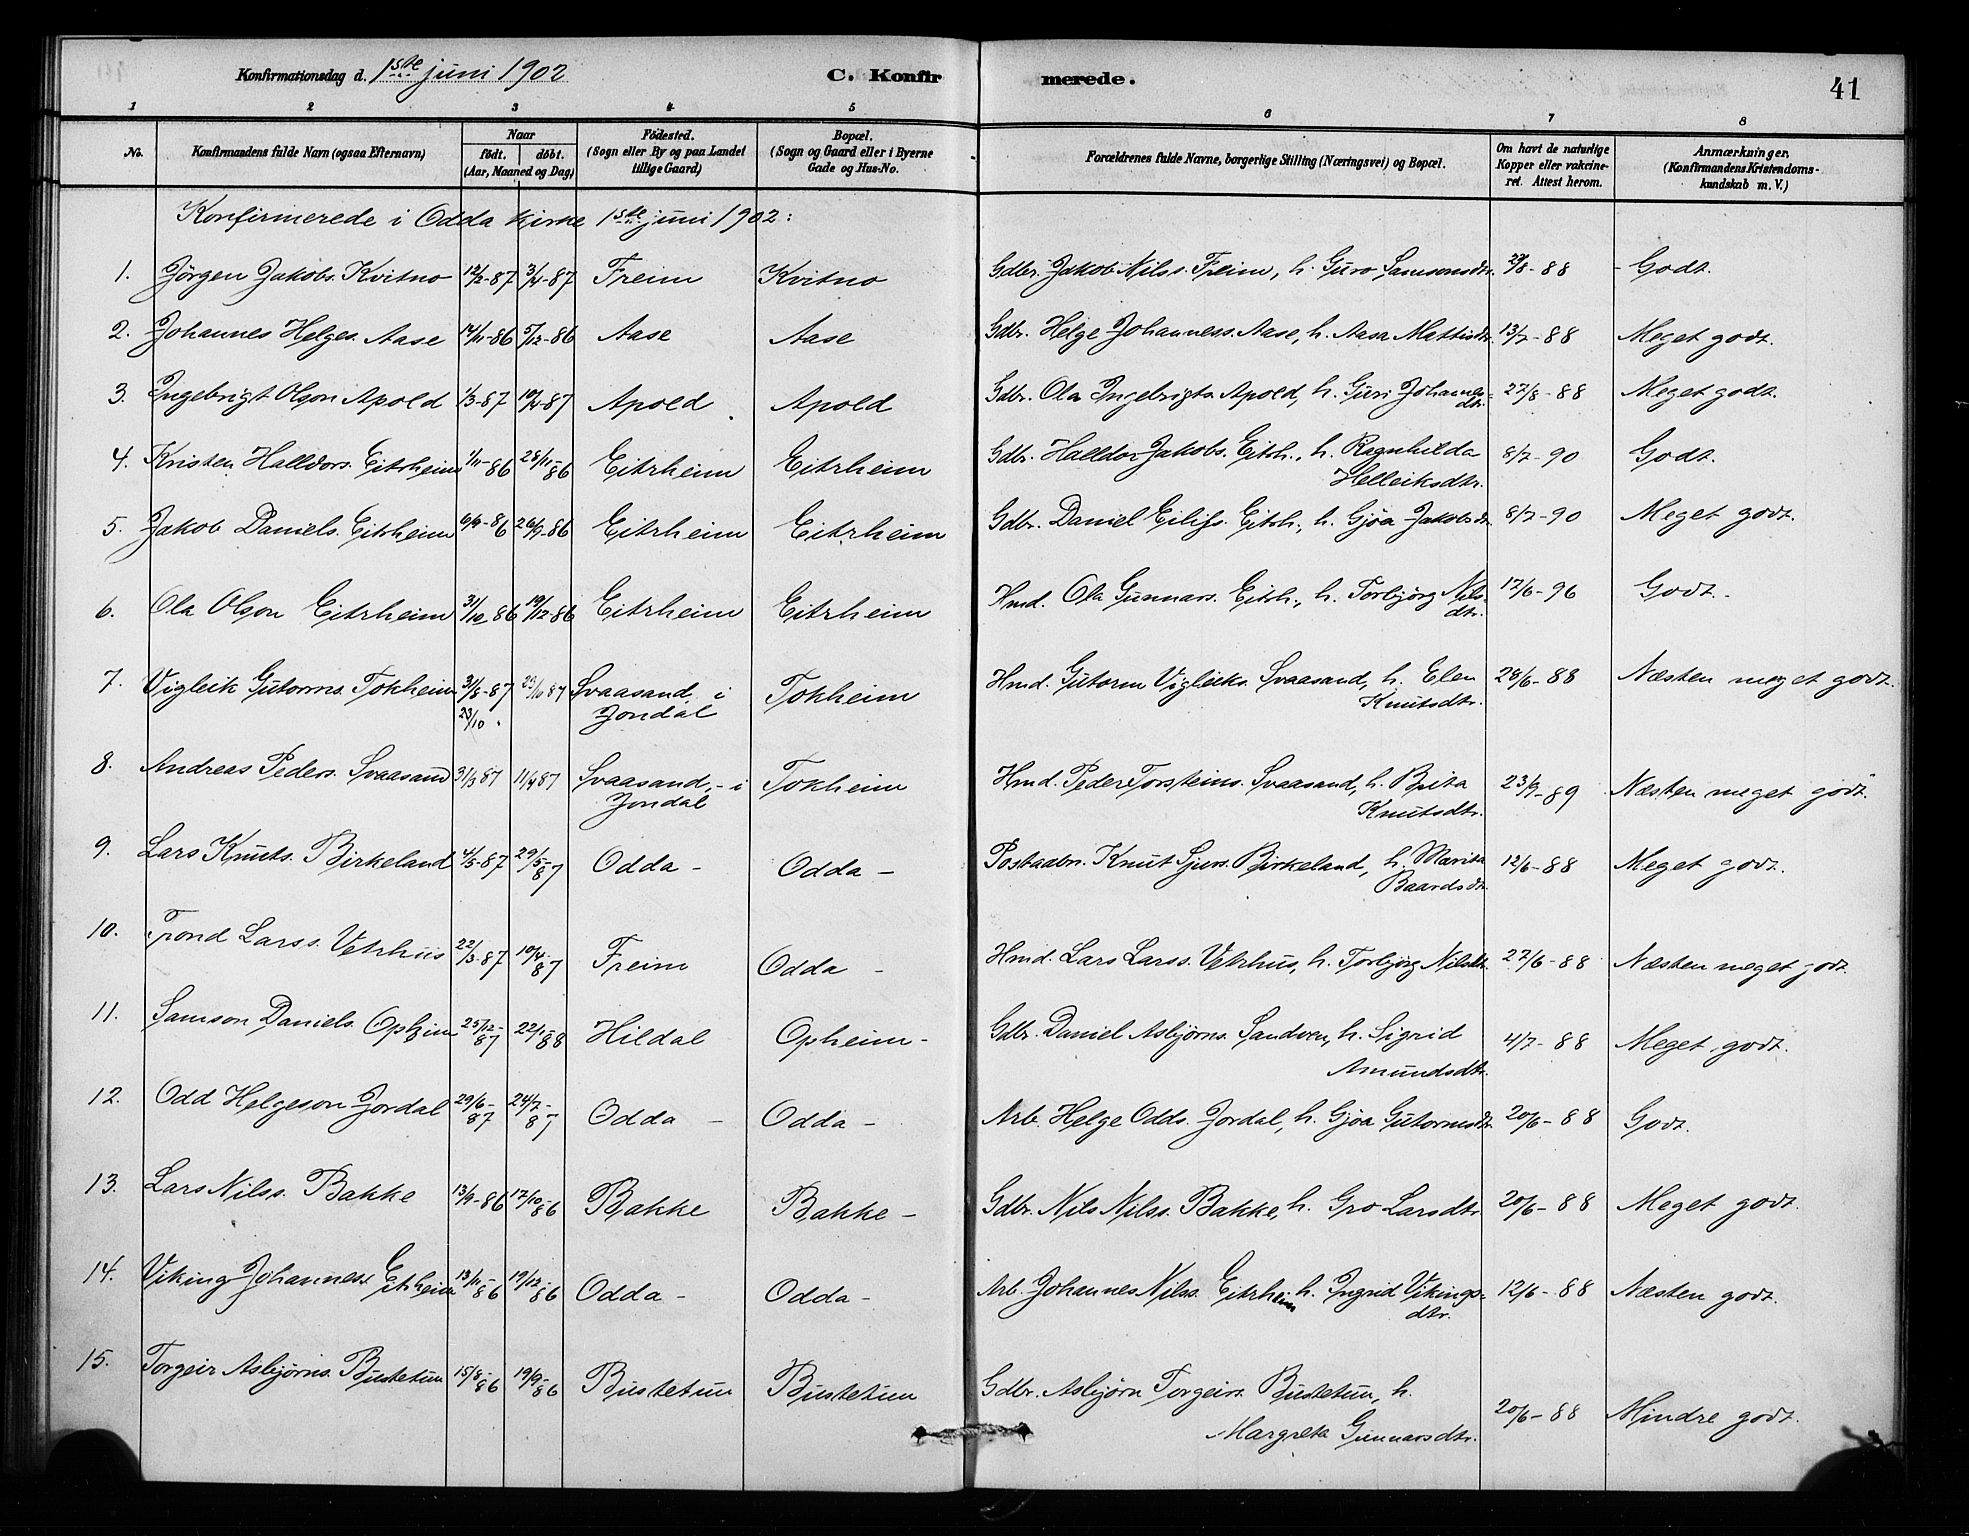 Konfirmationsdag d. 1ste juni 1902
C. Konfirmerede.
41
1 2 3 4 5 6 7 8
No.
Konfirmandens fulde Navn (ogsaa Efternavn)
Naar
födt. döbt.
(Aar, Maaned og Dag)
Födested.
(Sogn eller By og paa Landet
tillige Gaard)
Bopæl.
(Sogn og Gaard eller i Byerne
Gade og Hus-No.
Forældrenes fulde Navne, borgerlige Stilling (Næringsvei) og Bopæl.
Om havt de naturlige
Kopper eller vakcine-
ret. Attest herom.
Anmærkninger.
(Konfirmandens Kristendoms-
kundskab m. V.)
Konfirmerede i Odda kirke 1ste juni 1902:
1. Jørgen Jakobs. Kvitno 12/2-87 3/4-87 Freim Kvitno Gdbr. Jakob Nilss. Freim, h. Guro Samsonsdtr. /8-88 - Godt.
2. Johannes Helges. Aase 14/11-86 5/12-86 Aase Aase Gdbr. Helge Johanness. Aase, h. Aasa Mattisdtr. 13/7-88 Meget godt.
3. Ingebrigt Olson Apold 1/3-87 10/4-87 Apold Apold Gdbr. Ola Ingebrigts. Apold, h. Guri Johannes-
dtr. 27/8-88 Meget godt.
4. Kristen Halldors. Eitrheim 1/11-86 28/11-86 Eitrheim Eitrheim Gdbr. Halldor Jakobs. Eitrh., h. Ragnhilda
Helleiksdtr. 8/7-90 Godt.
5. Jakob Daniels. Eitrheim 6/9-86 26/9-86 Eitrheim Eitrheim Gdbr. Daniel Eilifs. Eitrh., h. Gjøa Jakobsdtr. 8/7-90 Meget godt.
6. Ola Olson Eitrheim 31/10-86 19/12-86 Eitrheim Eitrheim Hmd. Ola Gunnars. Eitrh., h. Torbjørg Nils-
dtr. 17/6-96 Godt.
7. Vigleik Gutorms. Tokheim 31/8-87 23/10 87 Svaasand i
23/10. Jondal Tokheim Hmd. Gutorm Vigleiks. Svaasand, h. Elen
Knutsdtr. 28/6-88 Næsten meget godt.
8. Andreas Peders. Svaasand 31/3 87 11/4 87 Svaasand, - i
Jondal Tokheim Hmd. Peder Torsteins. Svaasand, h. Brita
Knutsdtr. 23/9-89 Næsten meget godt.
9. Lars Knuts. Birkeland 4/5-87 29/5-87 Odda - Odda - Postaabn. Knut Sjurs. Birkeland, h. Marita
Baardsdtr. 12/6-88 Meget godt.
10. Trond Larss. Vetrhus 22/3-87 10/4-87 Freim Odda - Hmd. Lars Larss. Vetrhus, h. Torbjørg Nilsdtr. 27/6-88 Næsten meget godt.
11. Samson Daniels. Opheim 25/12-87 22/1-88 Hildal Opheim - Gdbr. Daniel Asbjørns. Sandven, h. Sigrid
Amundsdtr. 4/7-88 Meget godt.
12. Odd Helgeson Jordal 29/6-87 24/7-87 Odda - Odda - Arb. Helge Odds. Jordal, h. Gjøa Gutormsdtr. 20/6-88 Godt.
13. Lars Nilss. Bakke 13/9-86 17/10-86 Bakke Bakke - Gdbr. Nils Nilss. Bakke, h. Gro Larsdtr. 20/6-88 Meget godt.
14. Viking Johanness. Eitrheim 13/11-86 19/12-86 Odda - Odda - Arb. Johannes Nilss. Eitrheim h. Ingrid Vikings-
dtr. 12/6-88 Næsten godt.
15. Torgeir Asbjørns. Bustetun 15/8-86 19/9-86 Bustetun Bustetun Gdbr. Asbjørn Torgeirs. Bustetun, h.
Margreta Gunnarsdtr. 20/6-88 Mindre godt.